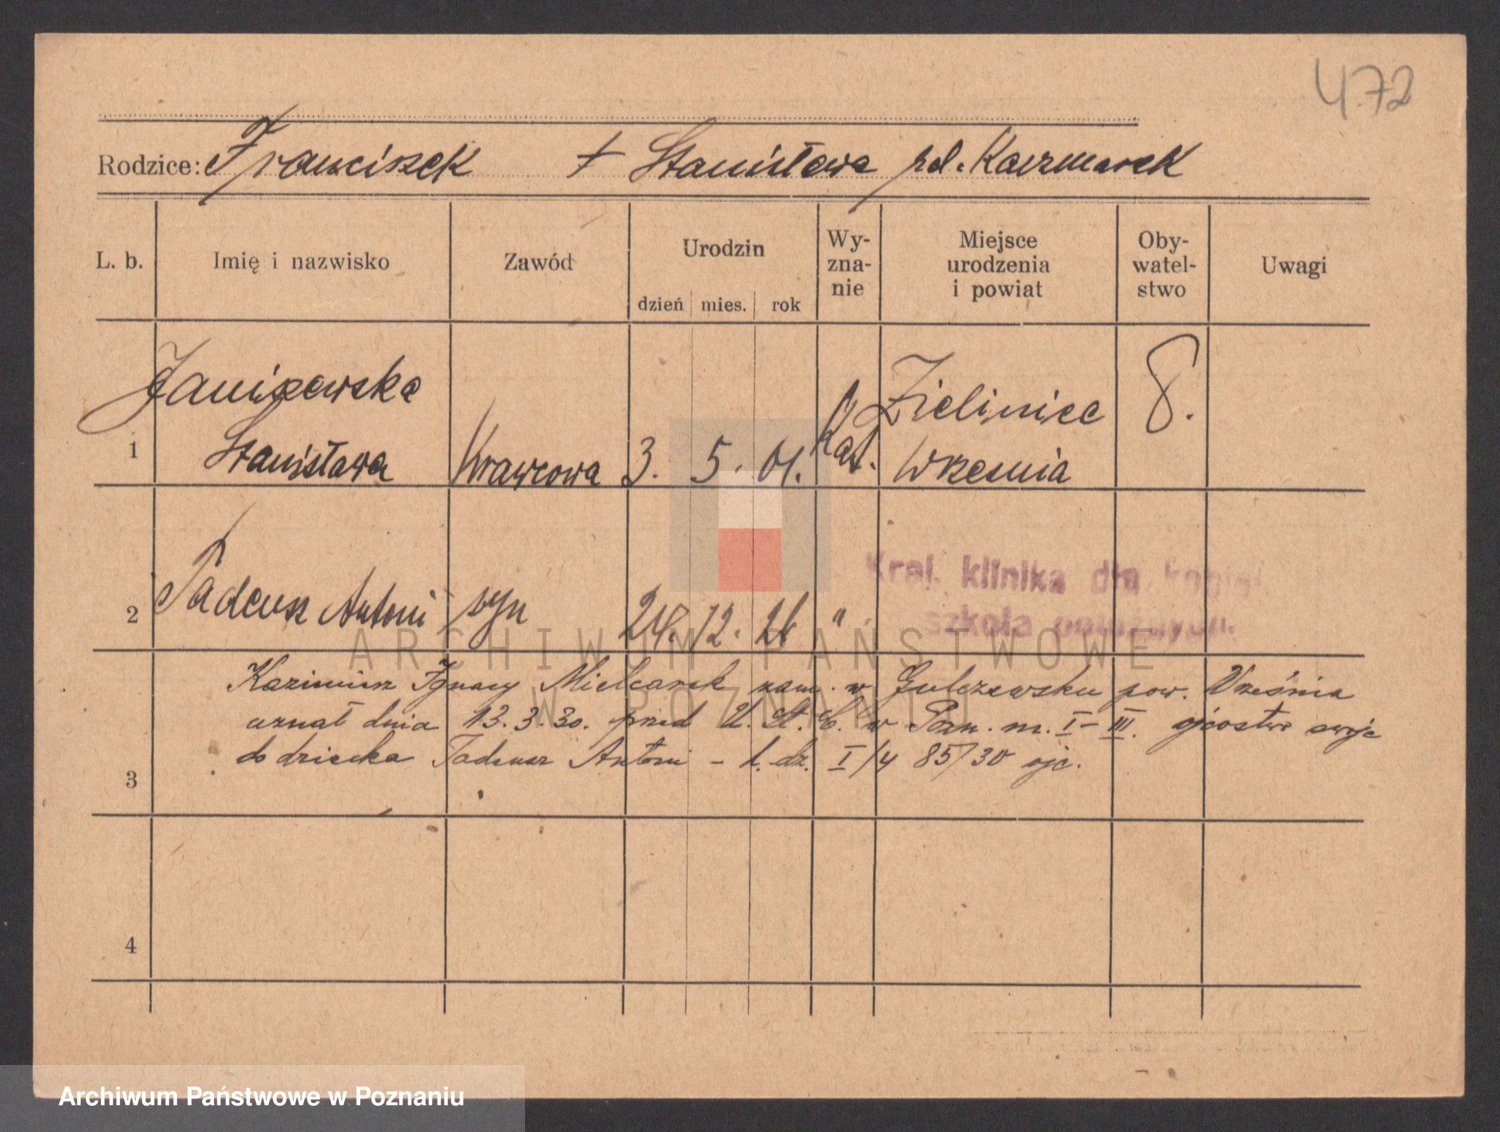 472
Rodzice: Franciszek + Stanisława pd. Kaczmarek
L. b. Imię i nazwisko Zawód Urodzin dzień mies. rok Wy-zna-nie Miejsce urodzenia i powiat Oby-watel-stwo Uwagi
Janiszewska Zieliniec 8.
1 Stanisława Krawcowa 3. 5. 01. Kat. Września
Kraj. klinika dla kobiet
2 Tadeusz Antoni syn 24. 12. 26 "
szkoła położnych.
ARCHIWUM PAŃSTWOWE
W POZNANIU
Kazimierz Ignacy Mielcarek zam. w Gulczewsku pow. Września
uznał dnia 13.3.30. przed U. St. C. w Pozn. m. I-III. ojcostwo swoje
do dziecka Tadeusz Antoni - l. dz. I/4 85/30 ojc.
3
4
Archiwum Państwowe w Poznaniu